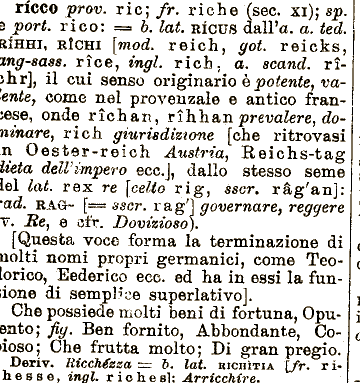 ricco prov. ric; fr. riche (sec. XI); sp.
e port. rico: = b. lat. RÍCUS dall'a. a. ted.
RÍHHI, RÎCHI [mod. reich, got. reicks,
ang-sass. rîce, ingl. rich, a. scand. rî-
chr], il cui senso originario è potente, va-
lente, come nel provenzale e antico fran-
cese, onde rîchan, rîhhan prevalere, do-
minare, rich giurisdizione [che ritrovasi
in Oester-reich Austria, Reichs-tag
dieta dell'impero ecc.], dallo stesso seme
del lat. rex re [celto rig, sscr. râg'an]:
rad. RAG- [= sscr. rag'] governare, reggere
(v. Re, e cfr. Dovizioso).
[Questa voce forma la terminazione di
molti nomi propri germanici, come Teo-
dorico, Eederico ecc. ed ha in essi la fun-
sione di semplice superlativo].
Che possiede molti beni di fortuna, Opu-
lento; fig. Ben fornito, Abbondante, Co-
pioso; Che frutta molto; Di gran pregio.
Deriv. Ricchézza = b. lat. RICHITIA [fr. ri-
chesse, ingl. riches]; Arricchire.